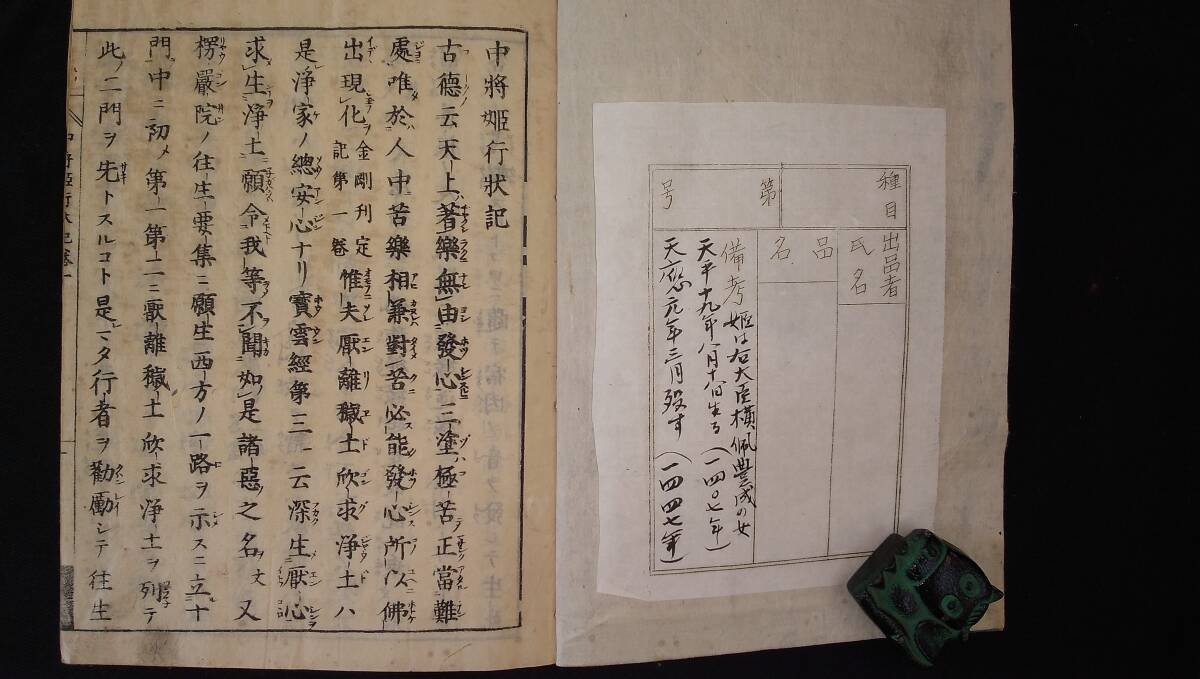 種目
出品者
氏名
第
号
品
名
備考 姫は右大臣横佩豊成の女
天平十九年八月十八日生る(一四〇七年)
天應元年三月歿す(一四四七年)
中將姫行狀記
古德云天上著樂無由發心三塗極苦正當難
處唯於人中苦樂相兼對苦必能發心所以佛
出現化金剛刊定記第一卷惟夫厭離穢土欣求淨土ハ
是淨家ノ總安心ナリ寶雲經第三云深生厭心
求生淨土願令我等不聞如是諸惡之名文又
楞嚴院ノ往生要集ニ願生西方ノ一路ヲ示スニ立十
門中ニ初メ第一第二ニ厭離穢土欣求淨土ヲ列テ
此ノ二門ヲ先トスルコト是マタ行者ヲ勸勵シテ往生